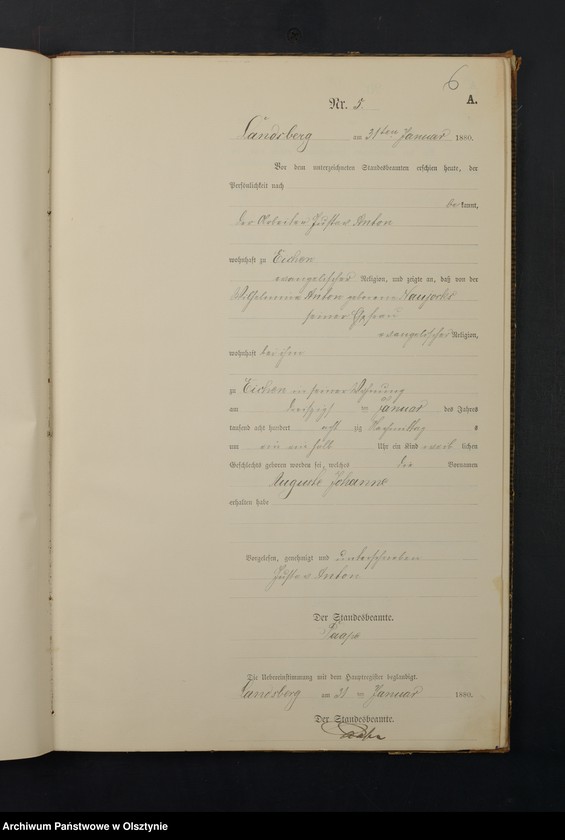 6
A.
Nr. 5.
Landsberg am 31ten Januar 1880.
Vor dem unterzeichneten Standesbeamten erschien heute, der
Persönlichkeit nach
be kannt,
der Arbeiter Gustav Anton
wohnhaft zu Eichen
evangelischer Religion, und zeigte an, daß von der
Wilhelmine Anton geborene Naujocks
seiner Ehefrau
evangelischer Religion,
wohnhaft bei ihm
zu Eichen in seiner Wohnung
am dreißigsten Januar des Jahres
tausend acht hundert acht zig Nachmittag s
um ein ein halb Uhr ein Kind weib lichen
Geschlechts geboren worden sei, welches die Vornamen
Auguste Johanne
erhalten habe
Vorgelesen, genehmigt und unterschrieben
Gustav Anton
Der Standesbeamte.
Die Uebereinstimmung mit dem Hauptregister beglaubigt.
Landsberg am 31 ten Januar 1880.
Der Standesbeamte.
Archiwum Państwowe w Olsztynie